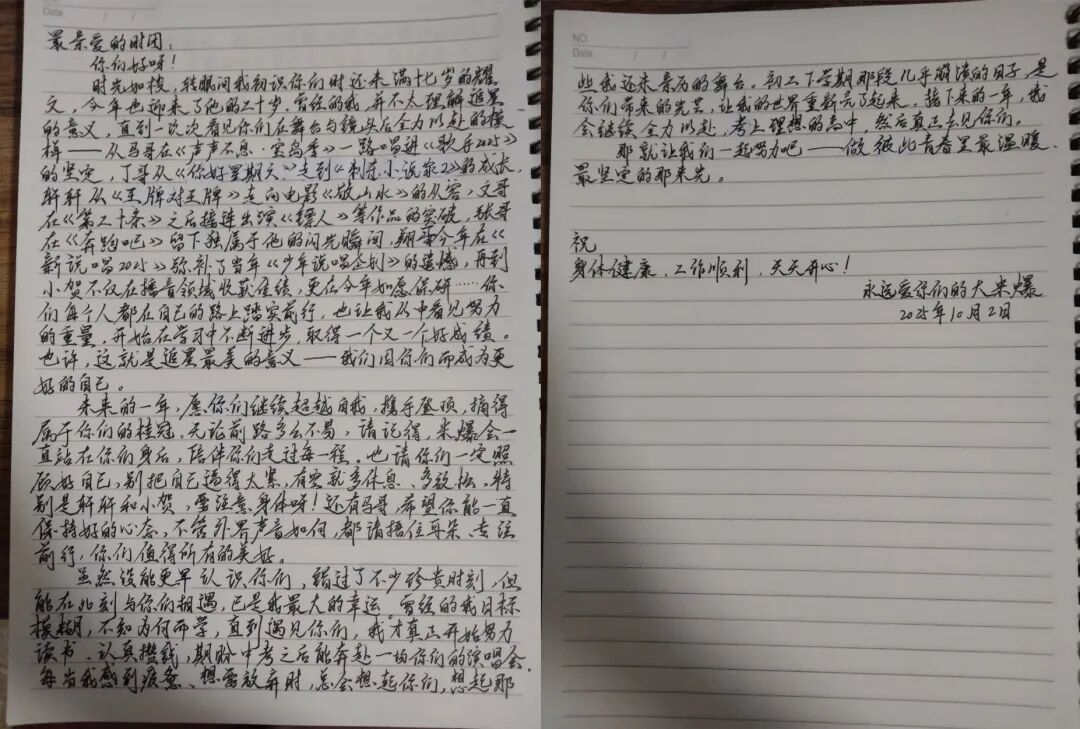 Date:
最亲爱的时团：
你们好呀！
时光如梭，转眼间我初识你们时还未满十七岁的耀
文，今年也迎来了他的二十岁。曾经的我，并不太理解追星
的意义，直到一次次看见你们在舞台与镜头后全力以赴的模
样——从马哥在《声声不息·宝岛季》一路唱进《歌手2025》
的坚定，丁哥从《你好星期六》走到《刺杀小说家2》的成长，
轩轩从《王牌对王牌》走向电影《敬山水》的从容，文哥
在《第二十条》之后接连出演《镖人》等作品的突破，张哥
在《奔跑吧》留下独属于他的闪光瞬间，翔哥今年在《
新说唱2025》弥补了当年《少年说唱企划》的遗憾，再到
小贺不仅在播音领域收获佳绩，更在今年如愿保研……你
们每个人都在自己的路上踏实前行，也让我从中看见努力
的重量，开始在学习中不断进步，取得一个又一个好成绩。
也许，这就是追星最美的意义——我们因你们而成为更
好的自己。
未来的一年，愿你们继续超越自我，携手登顶，摘得
属于你们的桂冠。无论前路多么不易，请记得，米爆会一
直站在你们身后，陪伴你们走过每一程。也请你们一定照
顾好自己，别把自己逼得太紧，有空就多休息、多放松，特
别是轩轩和小贺，要注意身体呀！还有马哥，希望你能一直
保持好的心态，不管外界声音如何，都请捂住耳朵、专注
前行，你们值得所有的美好。
虽然没能更早认识你们，错过了不少珍贵时刻，但
能在此刻与你们相遇，已是我最大的幸运。曾经的我目标
模糊，不知为何而学，直到遇见你们，我才真正开始努力
读书、认真攒钱，期盼中考之后能奔赴一场你们的演唱会。
每当我感到疲惫、想要放弃时，总会想起你们，想起那
NO.
Date.
些我还未亲历的舞台。初二下学期那段几乎崩溃的日子，是
你们带来的光芒，让我的世界重新亮了起来。接下来的一年，我
会继续全力以赴，考上理想的高中，然后真正去见你们。
那就让我们一起努力吧——做彼此青春里最温暖、
最坚定的那束光。
祝
身体健康，工作顺利，天天开心！
永远爱你们的大米爆
2025年10月2日